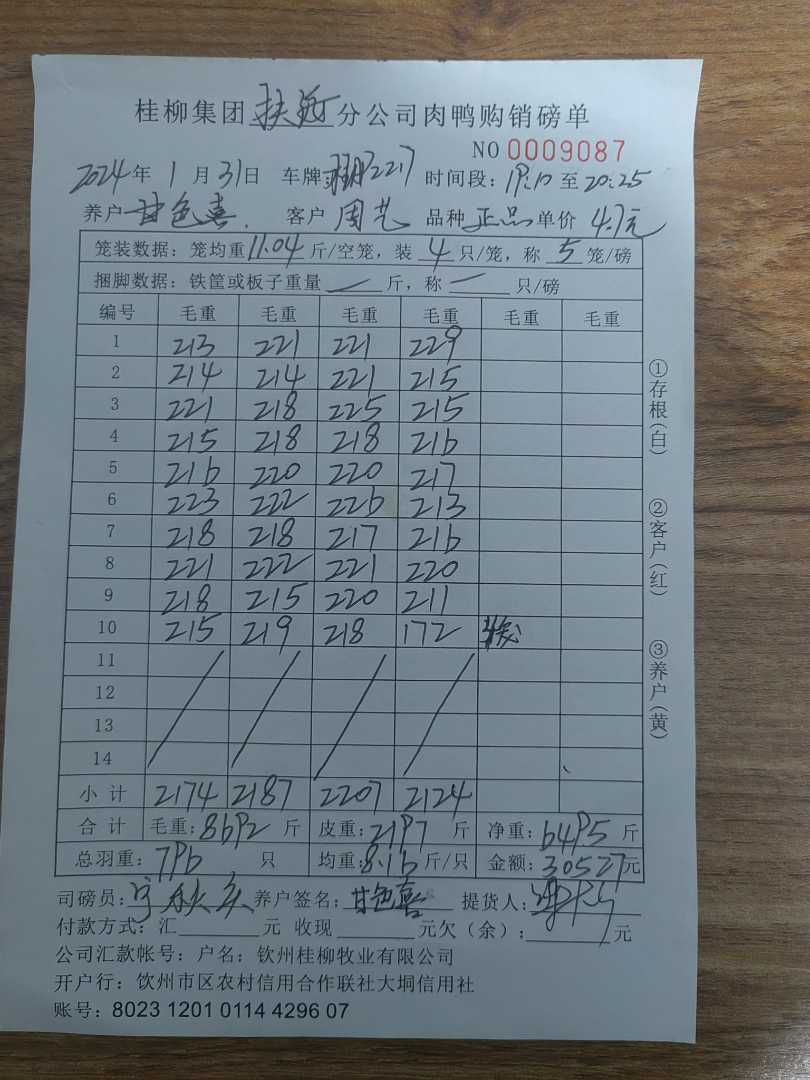 桂柳集团扶绥分公司肉鸭购销磅单
NO 0009087
2024年 1月31日 车牌:2217 时间段:19:10至20:25
养户甘色喜. 客户 周艺 品种正品单价 4.7元
笼装数据：笼均重11.04斤/空笼，装 4 只/笼，称 5 笼/磅
捆脚数据：铁筐或板子重量 — 斤，称 — 只/磅
编号 毛重 毛重 毛重 毛重 毛重 毛重
1 213 221 221 229
2 214 214 221 215
3 221 218 225 215
4 215 218 218 216
5 216 220 220 217
6 223 222 226 213
7 218 218 217 216
8 221 222 221 220
9 218 215 220 211
10 215 219 218 172
11
12
13
14
小计 2174 2187 2207 2124
合计 毛重:8692 斤 皮重:2197 斤 净重:6495斤
总羽重:796 只 均重:8.16斤/只 金额:30527元
司磅员: 养户签名:甘色喜 提货人:
付款方式：汇 元 收现 元欠（余）： 元
公司汇款帐号：户名：钦州桂柳牧业有限公司
开户行：饮州市区农村信用合作联社大垌信用社
账号：8023 1201 0114 4296 07
①存根(白)
②客户(红)
③养户(黄)